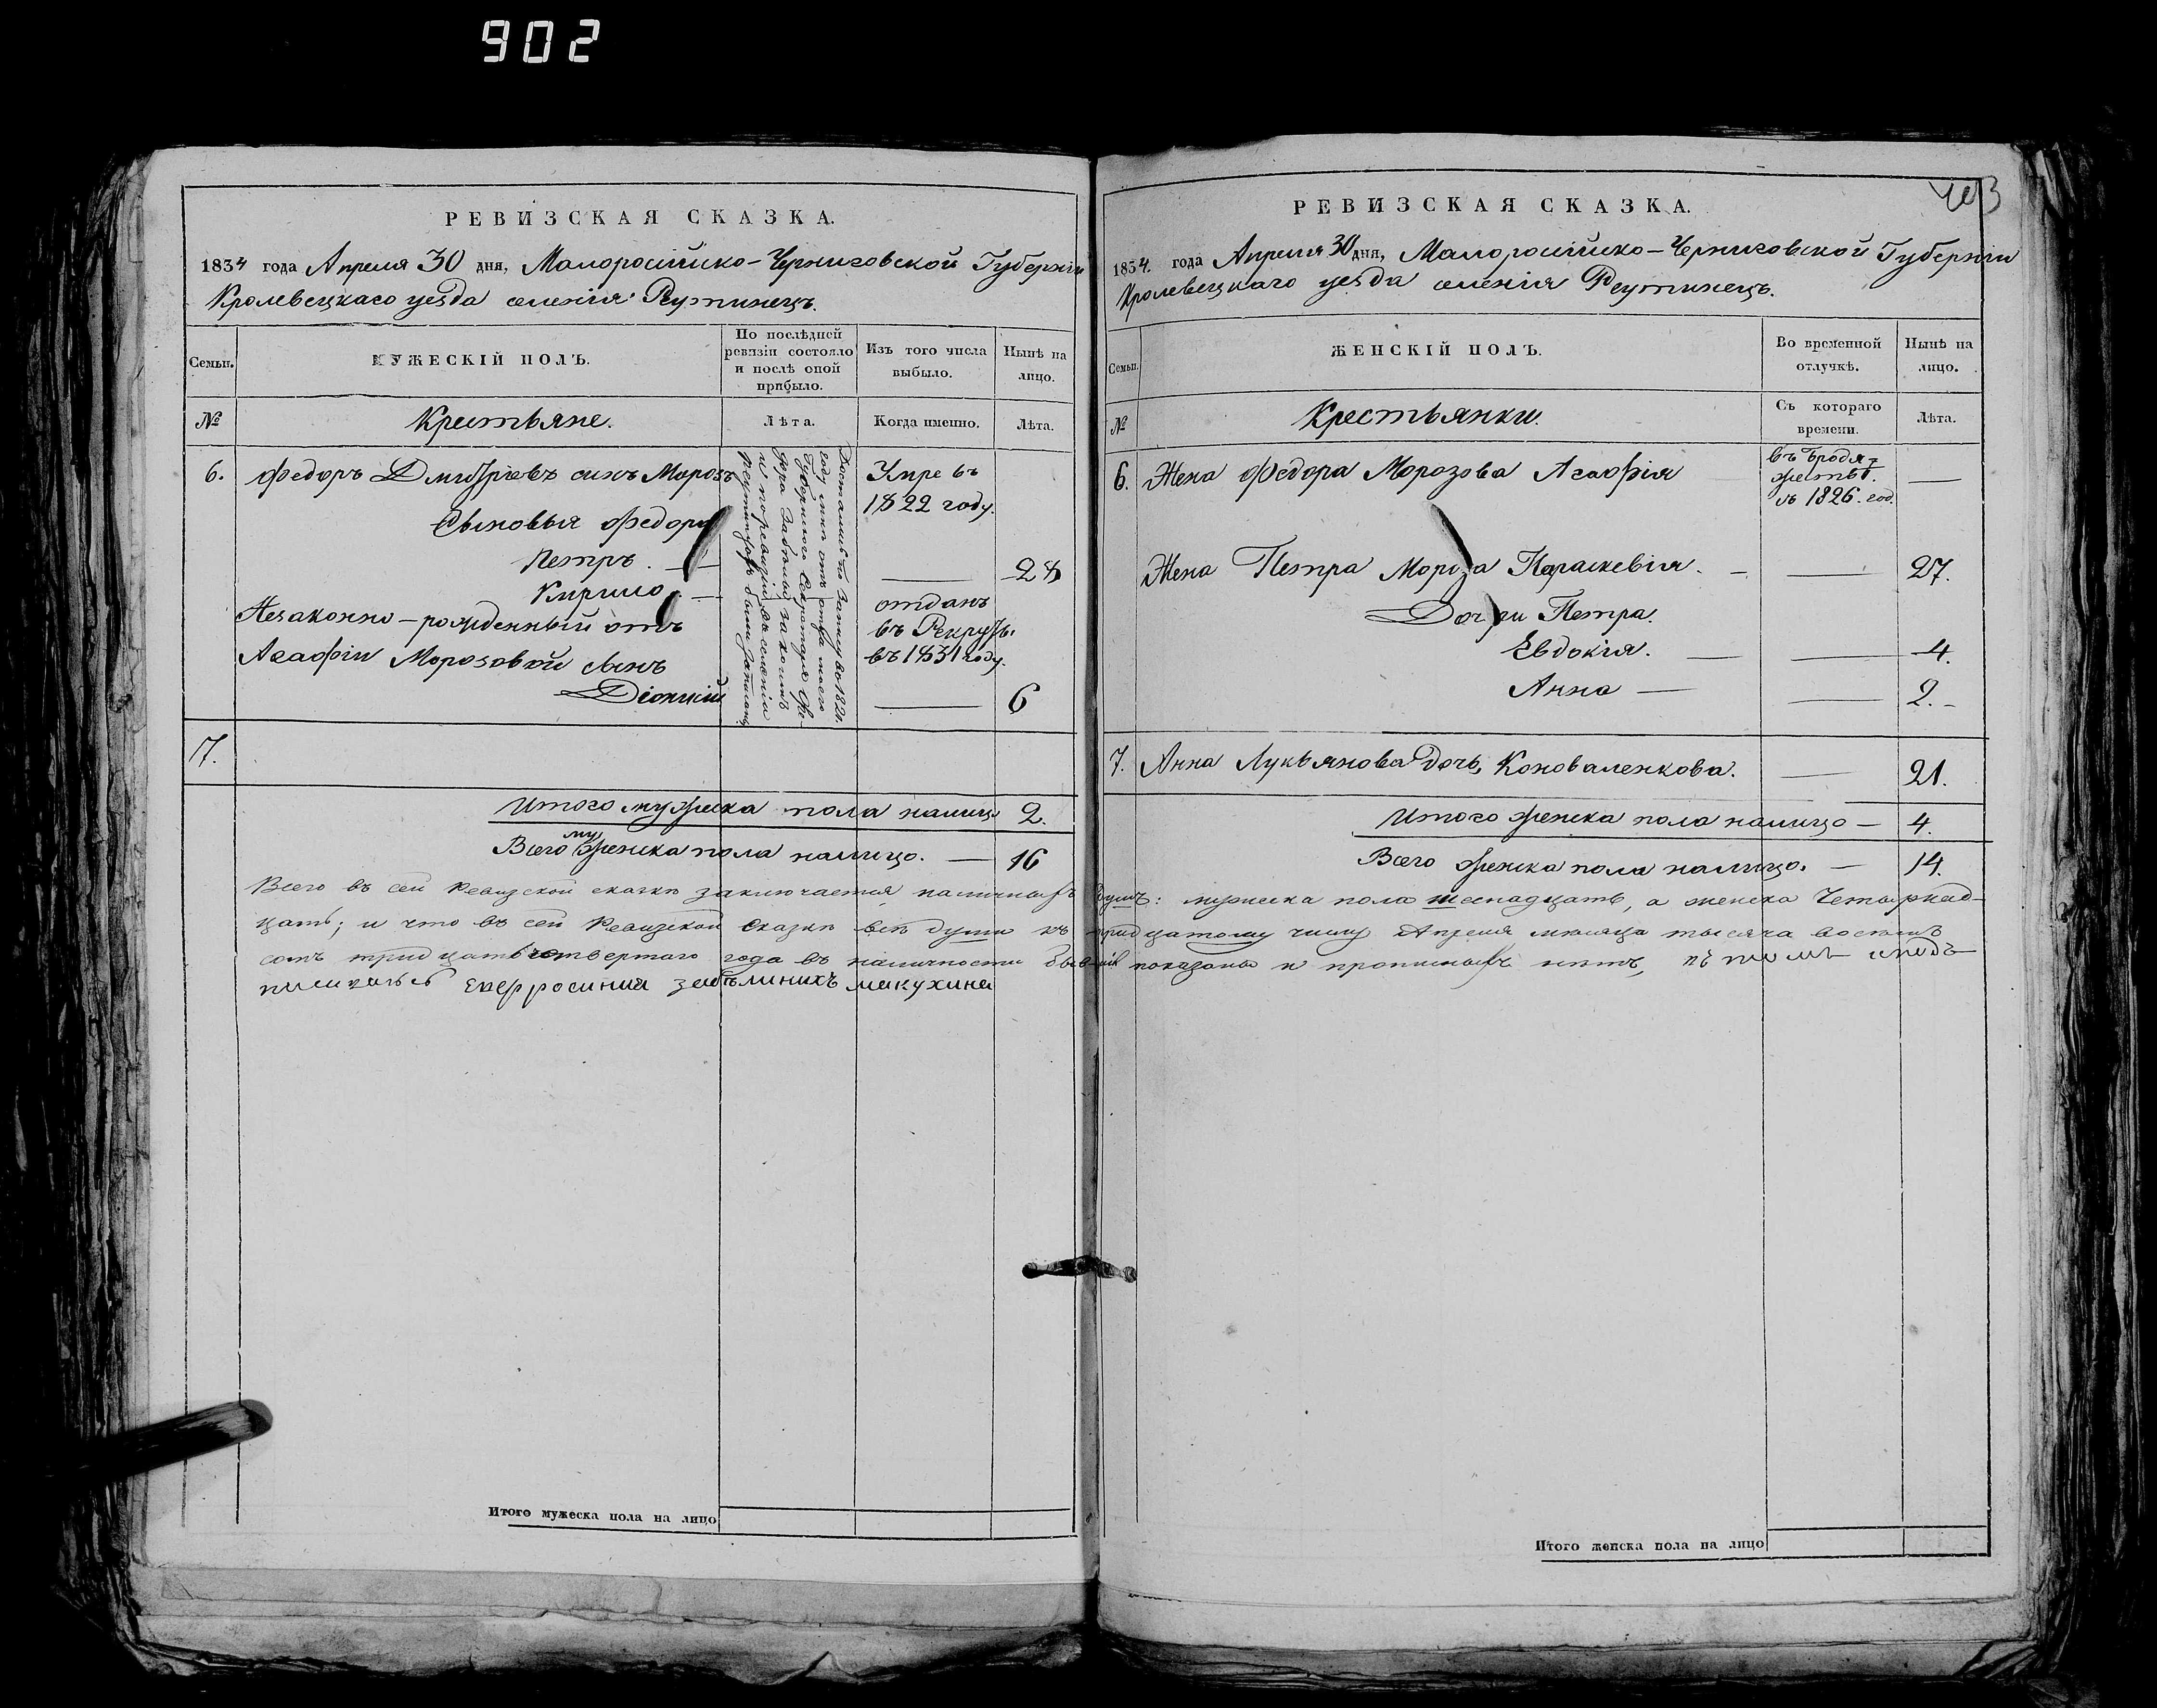 902
РЕВИЗСКАЯ СКАЗКА.
1834 года Апреля 30 дня, Малоросійско-Черниговской Губерніи
Кролевецкаго уезда селенія Реутинецъ.
Семьи.
МУЖЕСКІЙ ПОЛЪ.
По послѣдней
ревизіи состояло
и послѣ оной
прибыло.
Изъ того числа
выбыло.
Нынѣ на
лицо.
№
Крестьяне.
Лѣта.
Когда именно.
Лѣта.
6. Федоръ Дмитріевъ синъ Морозъ
Умре въ
1822 году.
Сыновья Федора
Петръ. — 28
Кирило. —
отданъ
въ Рекруты
въ 1831 году.
Незаконно-рожденный отъ
Агафіи Морозовой сынъ
Діонисій — 6
Досталась по въ 1821
году мне отъ отца моего
Губернского Секретаря
по ревизіи въ селеніи
7.
Итого мужеска пола налицо 2.
му
Всего женска пола налицо. — 16
Всего въ сей Ревизской сказке заключается наличныхъ
цать; и что въ сей Ревизской Сказке все души къ
сотъ тридцать четвертаго года въ наличности
Ефросиния макухина
Итого мужеска пола на лицо
403
РЕВИЗСКАЯ СКАЗКА.
1834. года Апреля 30 дня, Малоросійско-Черниговской Губерніи
Кролевецкаго уезда селенія Реутинецъ.
Семьи.
ЖЕНСКІЙ ПОЛЪ.
Во временной
отлучкѣ.
Нынѣ на
лицо.
№
Крестьянки.
Съ котораго
времени.
Лѣта.
6. Жена Федора Морозова Агафія
въ бродя-
жестве
съ 1826. год. —
Жена Петра Мороза Параскевія. — — 27.
Дочери Петра.
Евдокія. — — 4.
Анна — — 2.
7. Анна Лукьянова Дочь, Коноваленкова. — 21.
Итого женска пола налицо — 4.
Всего женска пола налицо. — 14.
душъ: мужеска пола шеснадцать, а женска Четырнад-
тридцатому числу Апреля месяца тысяча восемь
показаны и прописныхъ нетъ,
Итого женска пола на лицо